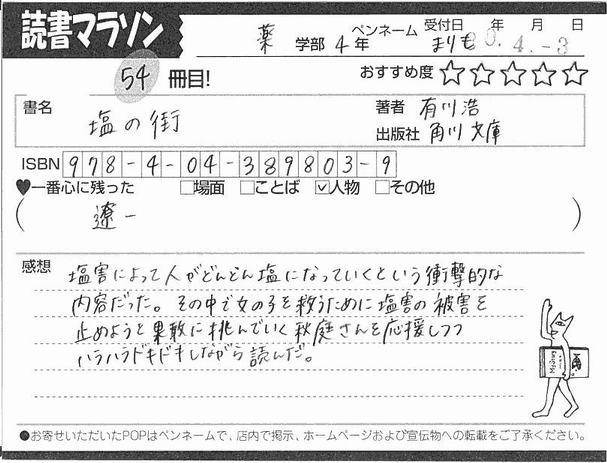 読書マラソン
薬 学部 4 年 ペンネーム まりも 受付日 年 月 日
20. 4. -3
54 冊目!
おすすめ度 ☆☆☆☆☆
書名 塩の街
著者 有川浩
出版社 角川文庫
ISBN 978-4-04-389803-9
♥一番心に残った □場面 □ことば ☑人物 □その他
( 遼一 )
感想
塩害によって人がどんどん塩になっていくという衝撃的な
内容だった。その中で女の子を救うために塩害の被害を
止めようと果敢に挑んでいく秋庭さんを応援しつつ
ハラハラドキドキしながら読んだ。
●お寄せいただいたPOPはペンネームで、店内で掲示、ホームページおよび宣伝物への転載をご了承ください。